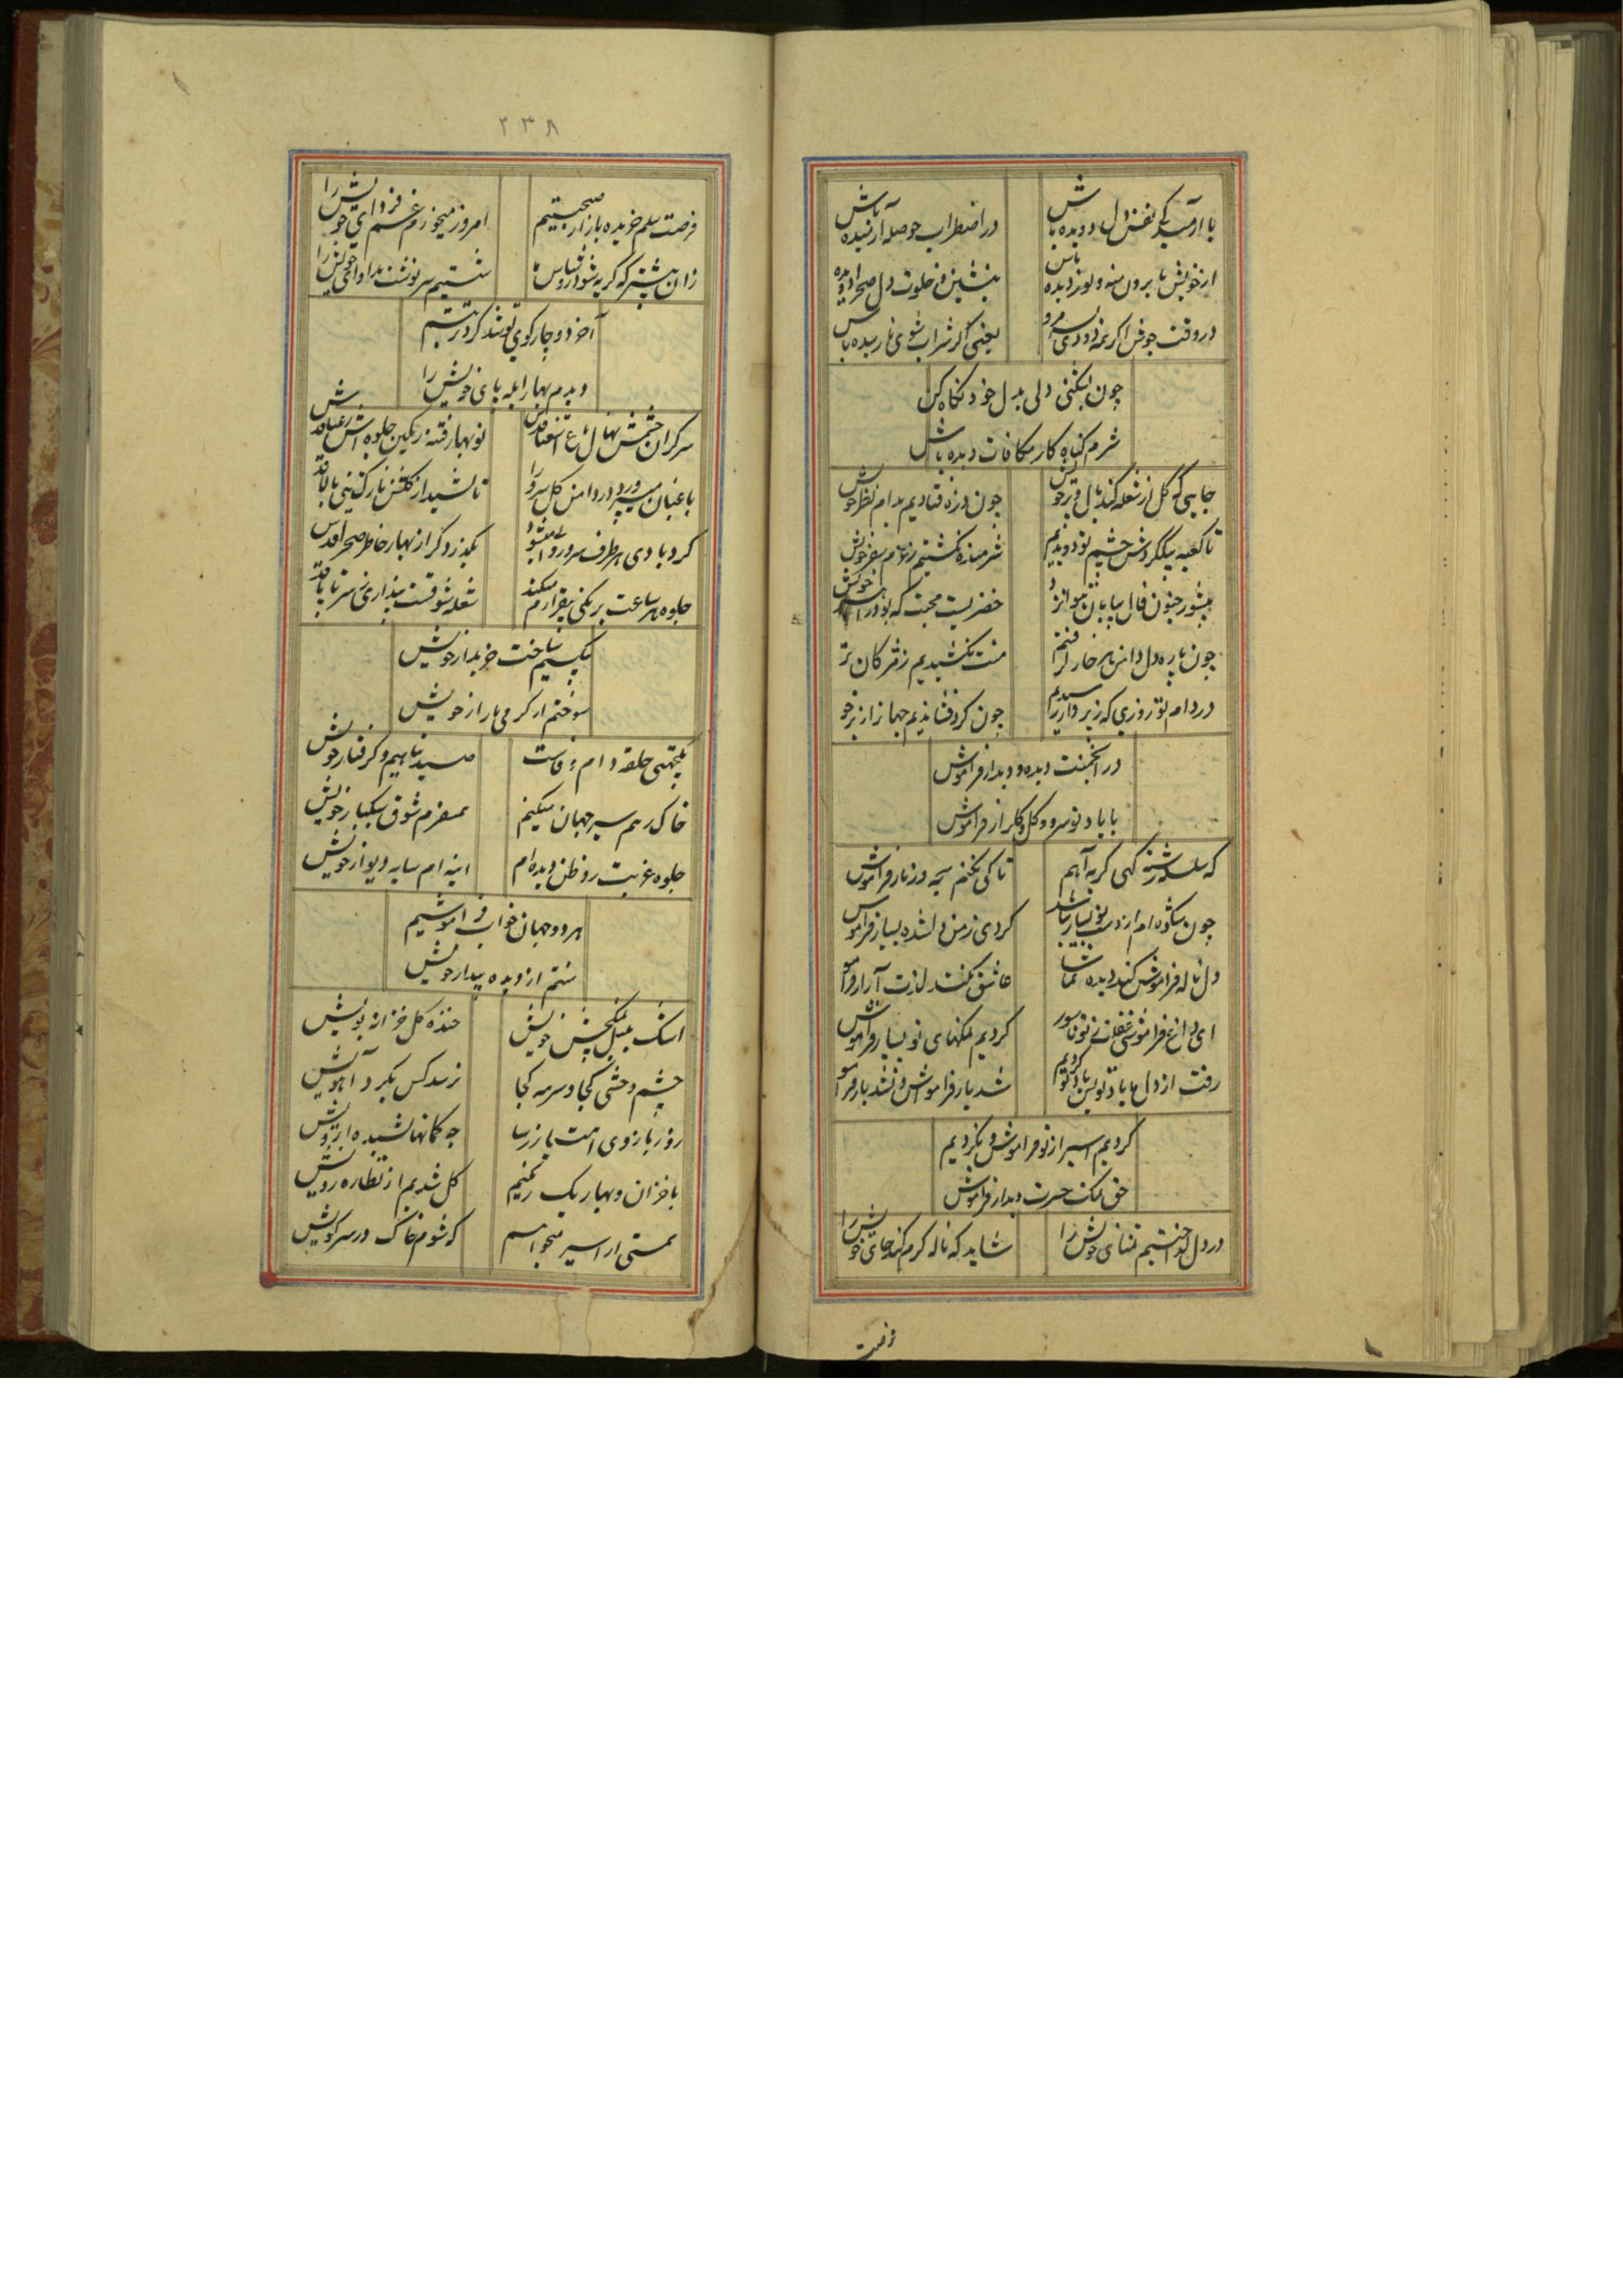 با آرمیدگی نفس دل دویده باش
در اضطراب حوصله آرمیده باش
از خویش پا برون منه و نوردیده باش
بنشین و خلوت دل صحرا دویده
در وقت جوش اگر همه دردی مرو
یعنی اگر شراب شوی نارسیده باش
چون بشکنی دلی بدل خود نگاه کن
شرم گناه کار مکافات دیده باش
جایی که گل از شعله کند بال و پر خویش
چون ذره فتادیم بدام نظر خویش
تا کعبه بیکگردش چشم تو دویدیم
شرمنده نگشتیم ز عزم سفر خویش
خضریست محبت که بود راهبر خویش
چون پاره دل دامن هر خار گرفتم
منت نکشیدیم ز مژگان تر
در دام تو روزی که ز پرواز رسیدیم
چون گرد فشاندیم جهان را ز پر خو
در انجمنت دیده و دیدار فراموش
با یاد تو سرو و گل و گلزار فراموش
که سلسله رشته گهی گریه آهم
تا کی نکنم سبحه و زنار فراموش
چون شکوه ام از دست تو بسیار نباشد
کردی ز من دلشده بسیار فراموش
دل ناله فراموش کند دیده تماشا
عاشق نکند لذت آزار فرامو
ای داغ فراموشی غفلت ز تو ناسور
کردیم نمکهای تو بسیار فراموش
رفت از دل ما یاد تو بس یاد تو کردیم
شد یار فراموش و نشد یار فرامو
کردیم اسیر از تو فراموش و نکردیم
حق نمک حسرت دیدار فراموش
در دل گداختیم تمنای خویش را
شاید که ناله گرم کند جای خویش را
فرصت
۲۳۸
فرصت سلم خریده بازار صحبتیم
امروز میخوریم غم فردای خویش را
زان پیشتر که گریه شود روشناس ما
شستیم سرنوشت مداوای خویش را
آخر دوچار کوی تو شد گرد تربتم
دیدم بهار آبله پای خویش را
سرگران خشمش نهال باغ استغنا قدش
نوبهار فتنه رنگین جلوه اش رعنا قدش
باغبان میپرورد در دامن گل سرو را
تا کشید از گلشن نازک تنی بالا قدش
گردبادی هر طرف سرو روانی میشود
بگذرد گر از بهار خاطر صحرا قدش
جلوه هر ساعت برنگی بیقرارم میکند
شعله شوقست پنداری ز سر تا پا قدش
بیکسیم ساخت خریدار خویش
سوختم از گرمی بازار خویش
یکجهتی حلقه دام وفاست
صید نباهیم و گرفتار خویش
خاک رهم سیر جهان میکنم
همسفرم شوق سبکبار خویش
جلوه غربت ز وطن دیده ام
اینه ام سایه دیوار خویش
هر دو جهان خواب فراموشیم
منتم از دیده بیدار خویش
اشک بلبل نمکچش خویش
خنده گل خزانه بویش
چشم وحشی کجا و سرمه کجا
نرسد کس بگرد آهویش
زور بازوی امتیاز رسا
چه کمانها کشیده ابرویش
با خزان و بهار یک رنگیم
گل شدیم از نظاره رویش
هستی از اسیر میخواهم
که شوم خاک در سر کویش